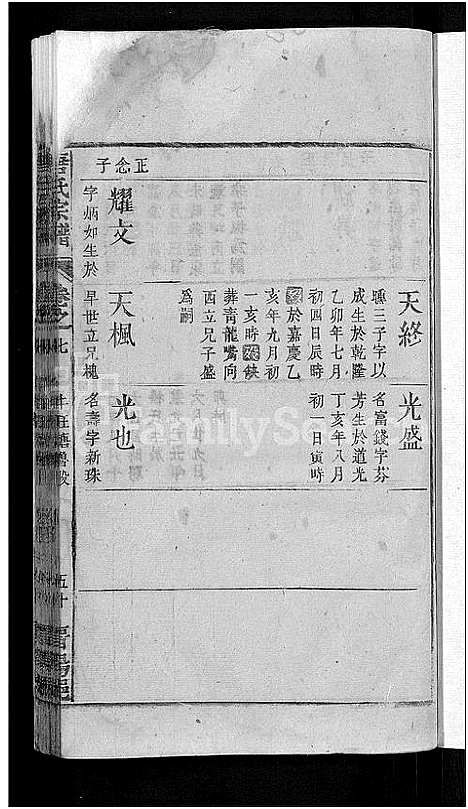 天終
驥三子字以
成生於乾隆
乙卯年七月
初四日辰時
歿於嘉慶乙
亥年九月初
一亥時  俠
葬靑龍嘴向
酉立兄子盛
爲嗣
光盛
名富錢字芬
芳生於道光
丁亥年八月
初 日寅時
正念子
耀文
字炳如生於
天楓
早世立兄槐
光也
名壽字新珠
氏宗譜
卷之七
五十
FamilySe